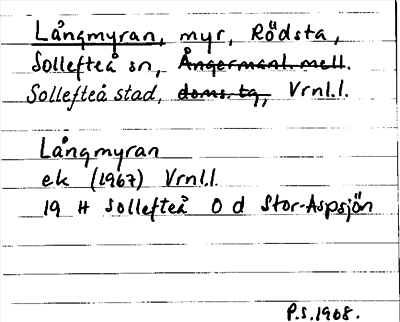 Långmyran, myr, Rödsta,
Sollefteå sn, Ångermanl. mell.
Sollefteå stad, doms. tg, Vrnl.l.
Långmyran
ek (1967) Vrnl.l.
19 H Sollefteå 0 d Stor-Aspsjön
P.S. 1968.